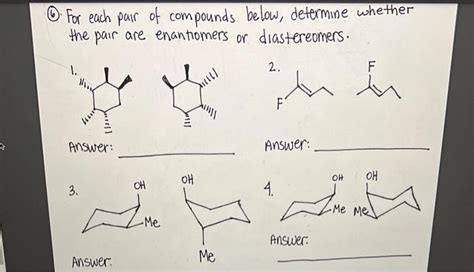 ⑥ For each pair of compounds below, determine whether
the pair are enantiomers or diastereomers.
1.
2.
F
F
Answer:
Answer:
3.
OH
Me
OH
Me
4.
OH
Me
OH
Me
Answer:
Answer: